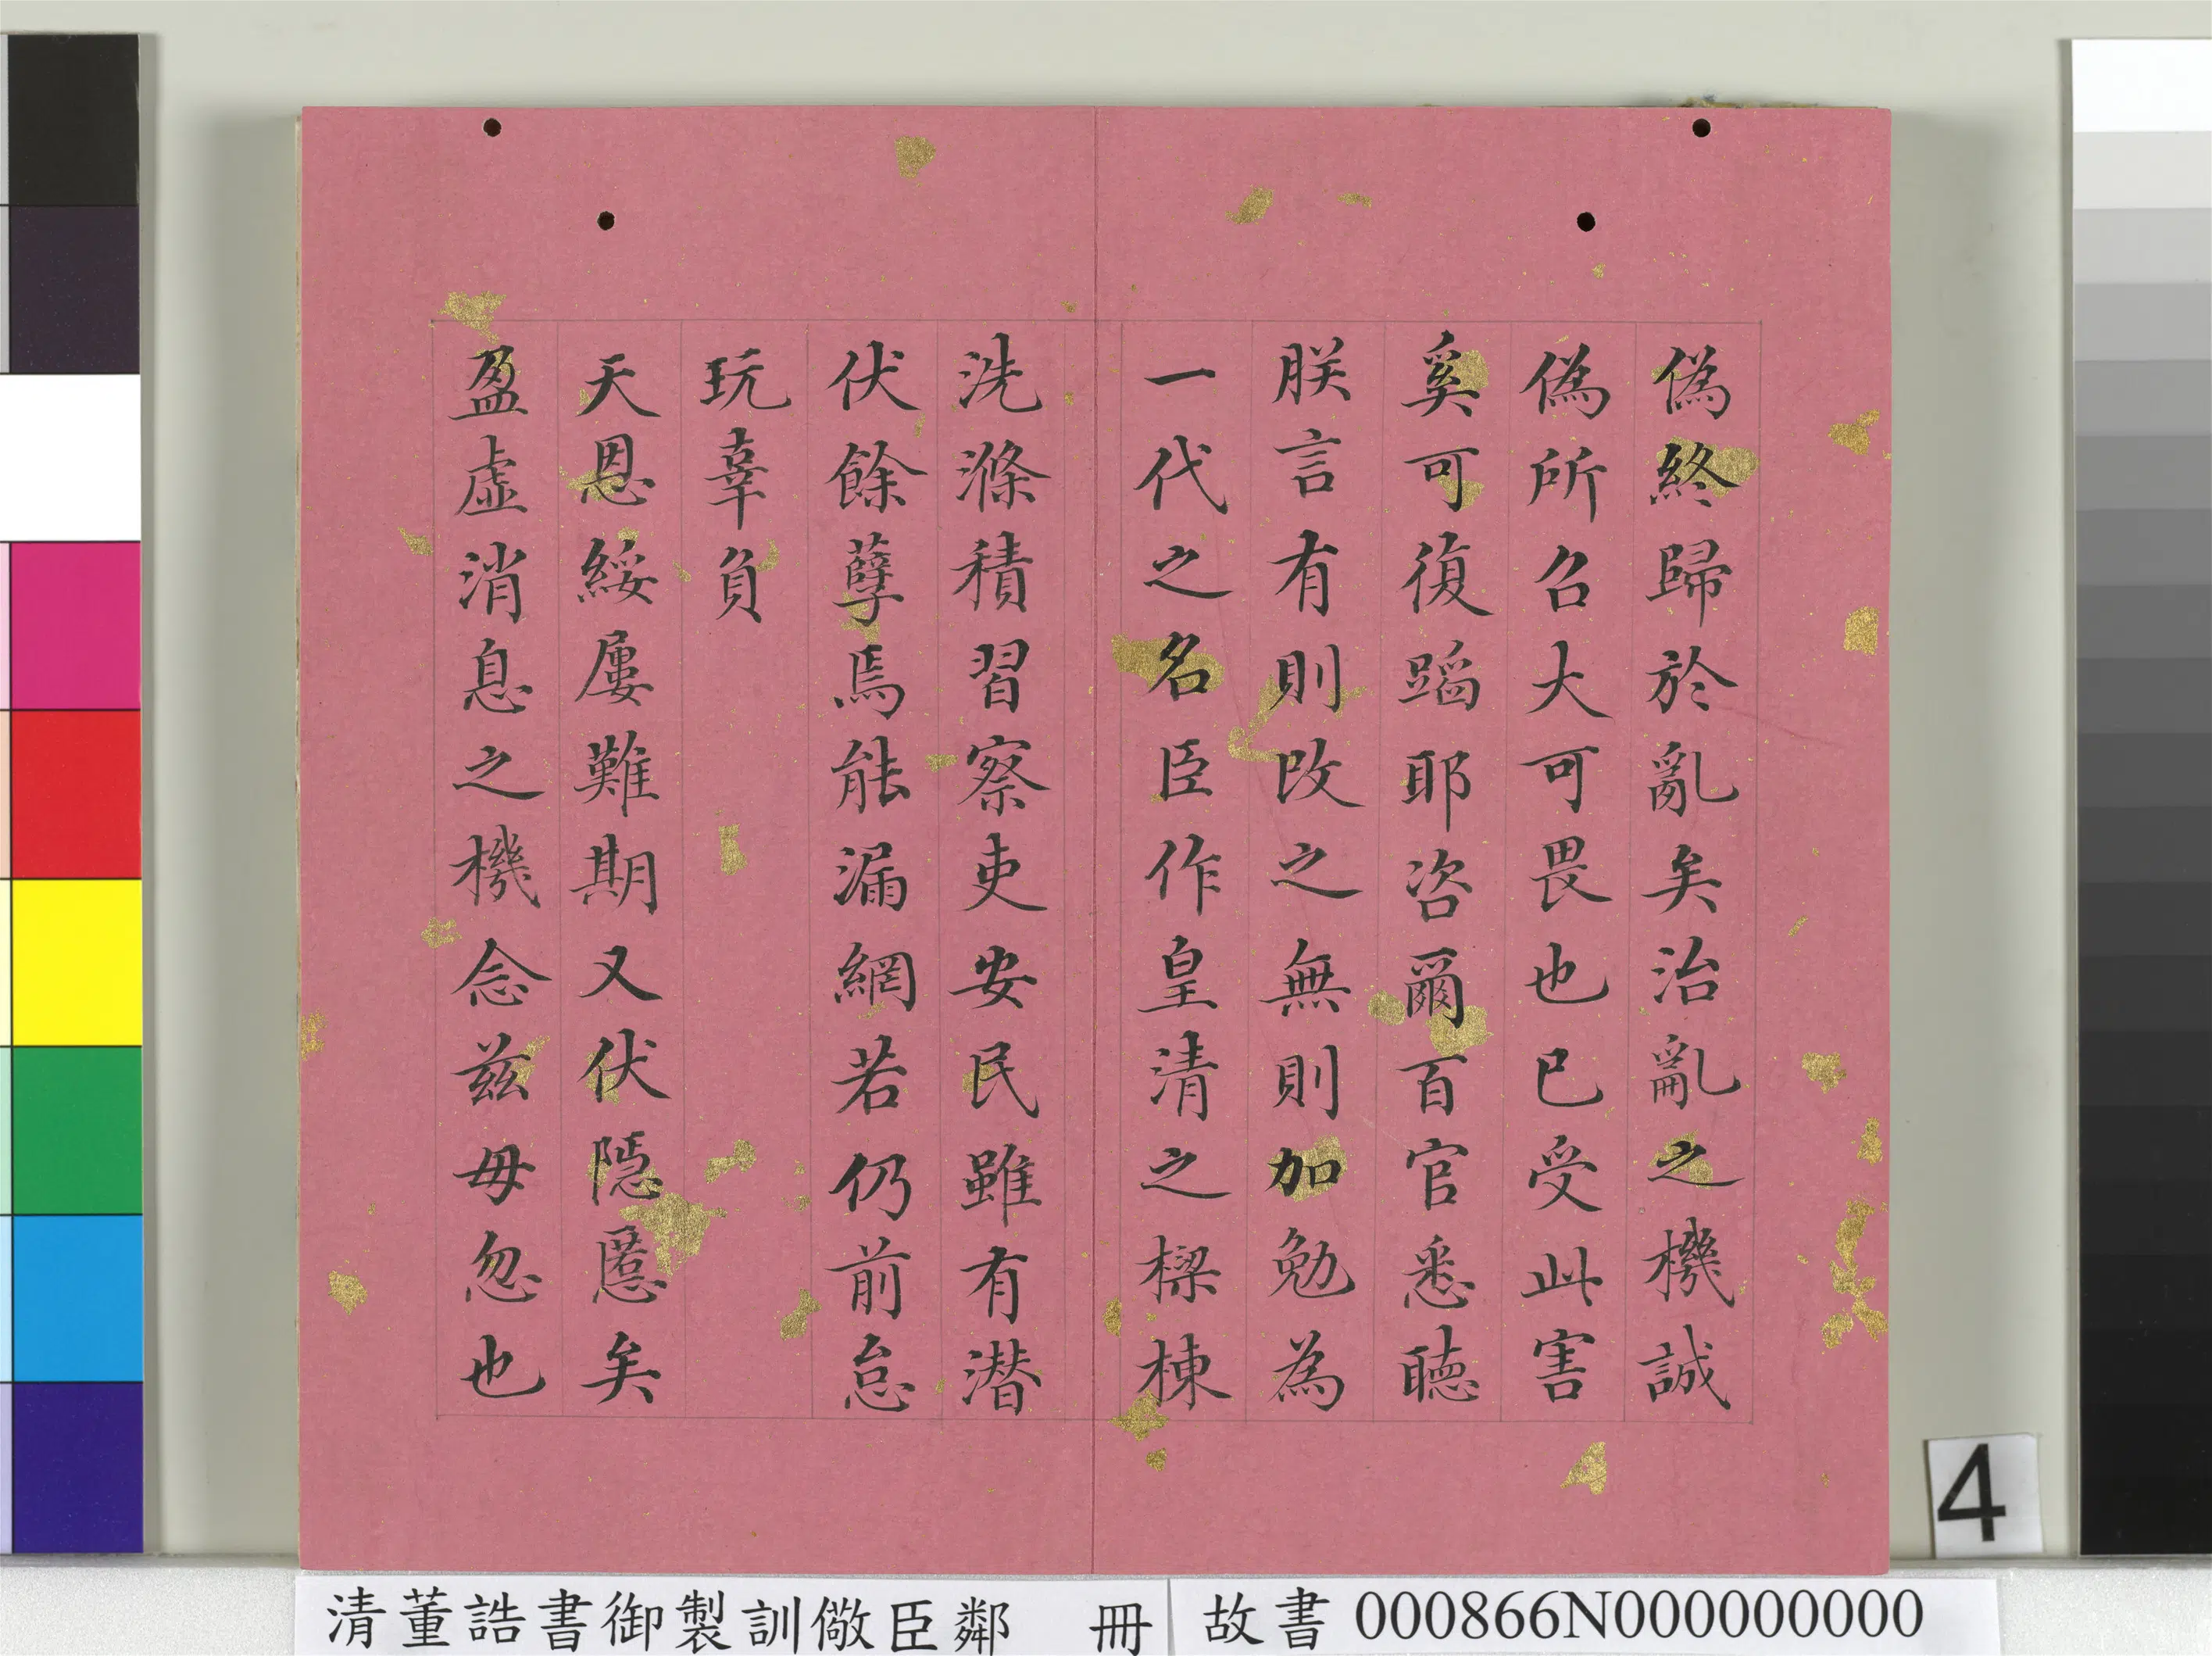 偽終歸於亂矣治亂之機誠
偽所召大可畏也已受此害
奚可復蹈耶咨爾百官悉聽
朕言有則改之無則加勉為
一代之名臣作皇清之樑棟
洗滌積習察吏安民雖有潛
伏餘孽焉能漏網若仍前怠
玩辜負
天恩綏屢難期又伏隱慝矣
盈虛消息之機念兹毋忽也
4
清董誥書御製訓儆臣鄰 冊
故書 000866N000000000